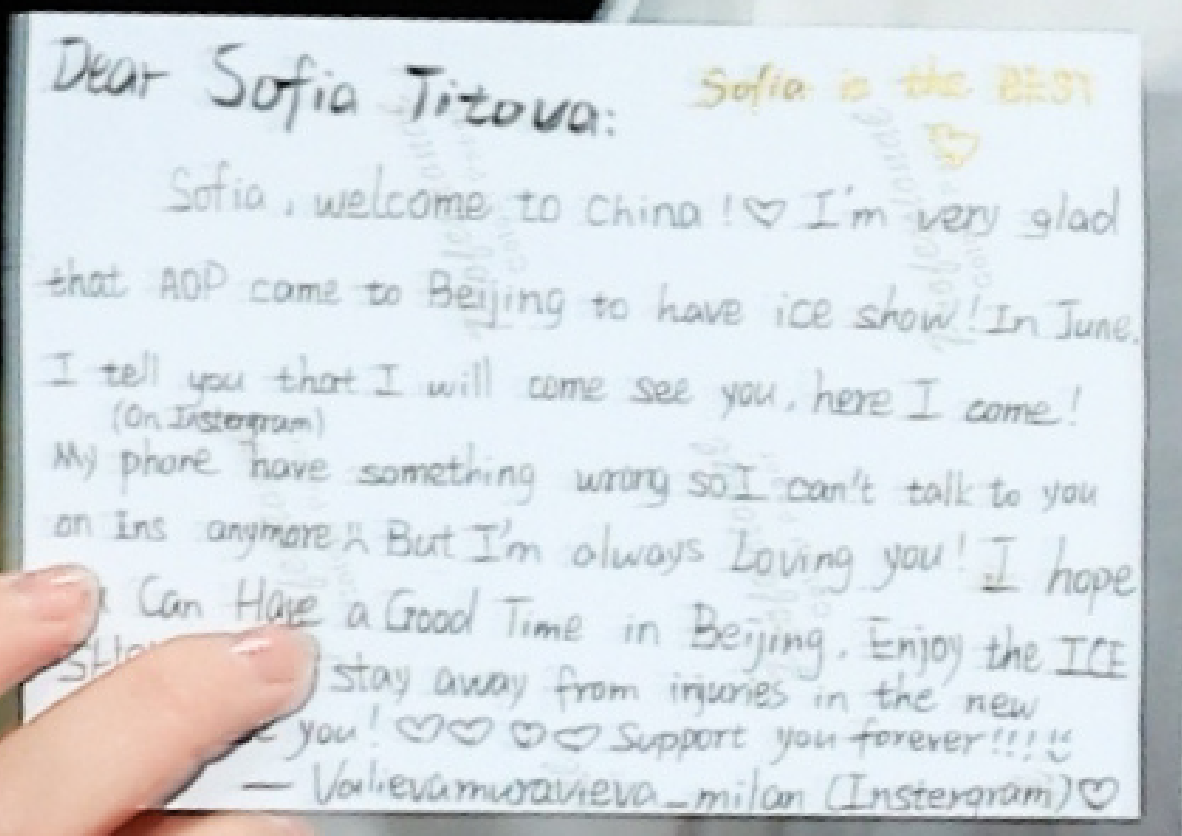 Dear Sofia Titova:
Sofia is the BEST
Sofia, welcome to China!♡ I'm very glad
that AOP came to Beijing to have ice show! In June.
I tell you that I will come see you, here I come!
(On Instergram)
My phone have something wrong so I can't talk to you
on Ins anymore But I'm always Loving you! I hope
Can Have a Good Time in Beijing. Enjoy the ICE
stay away from injuries in the new
you! ♡♡♡♡ Support you forever!!!!
— Valievamuravieva_milan (Instergram)♡